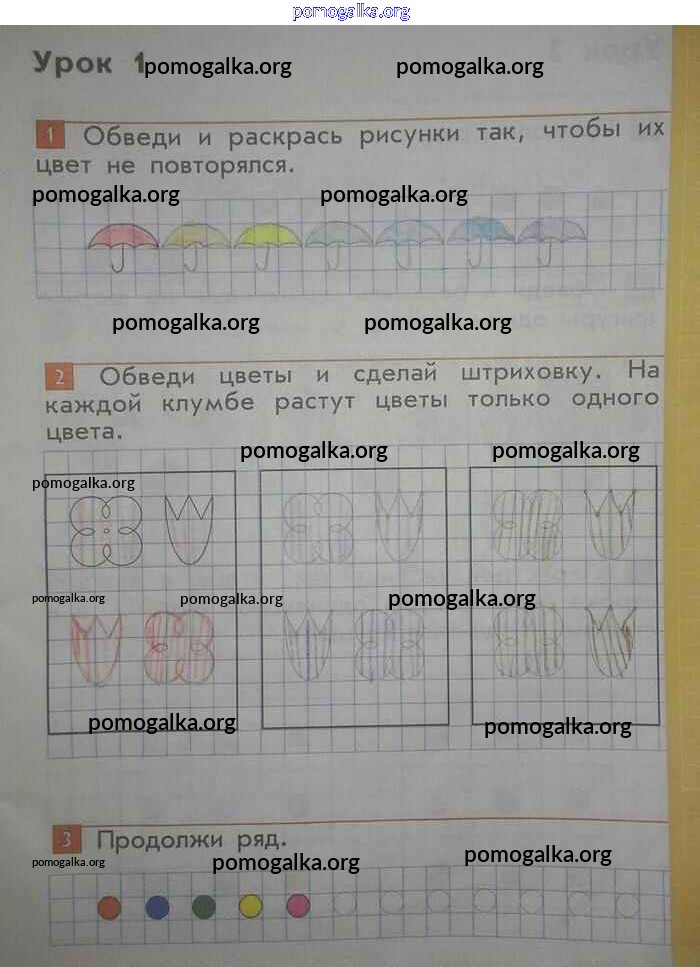 pomogalka.org
Урок 1
pomogalka.org pomogalka.org
1 Обведи и раскрась рисунки так, чтобы их
цвет не повторялся.
pomogalka.org pomogalka.org
pomogalka.org pomogalka.org
2 Обведи цветы и сделай штриховку. На
каждой клумбе растут цветы только одного
цвета.
pomogalka.org pomogalka.org
pomogalka.org
pomogalka.org pomogalka.org pomogalka.org
pomogalka.org pomogalka.org
3 Продолжи ряд.
pomogalka.org pomogalka.org pomogalka.org